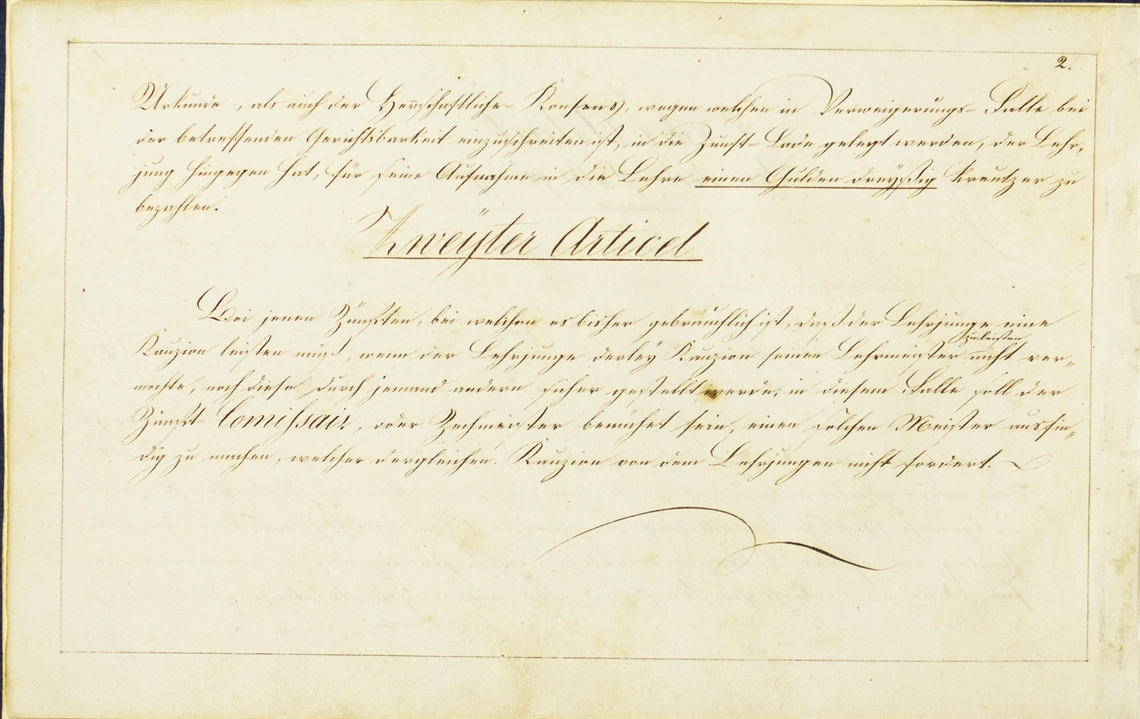 2.
Urkunde, als auch der Herrschaftliche Konsens, wegen welchen in Verweigerungs-Falle bei
der betreffenden Gerichtsbarkeit einzuschreiten ist, in die Zunft-Lade gelegt werden, der Lehr„
jung hingegen hat, für seine Aufnahme in die Lehre einen Gulden dreyßig Kreutzer zu
bezahlen.
Zweÿter Articel
Bei jenen Zünften, bei welchen es bisher gebräuchlich ist, daß der Lehrjunge eine
Kauzion leisten muß, wenn der Lehrjunge derleÿ Kauzion seinen Lehrmeister zu leisten nicht ver„
mochte, noch diese durch jemand andern sicher gestellt werde, in diesem Falle soll der
Zunft-Comissair, oder Zechmeister bemühet sein, einen solchen Meister ausfin„
dig zu machen, welcher dergleichen Kauzion von dem Lehrjungen nicht fordert.